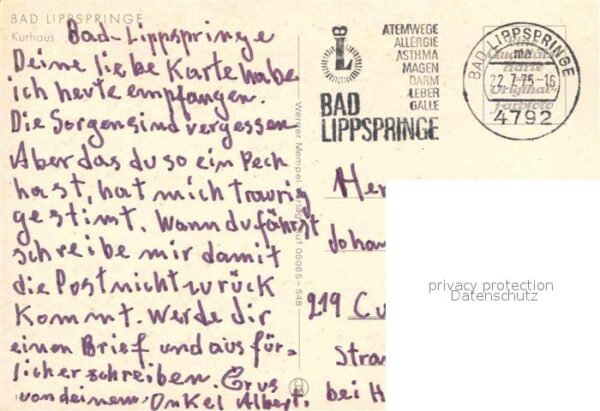 BAD LIPPSPRINGE
Kurhaus
Bad-Lippspringe
Deine liebe Karte habe
ich heute empfangen.
Die Sorgen sind vergessen
Aber das du so ein Pech
hast, hat mich traurig
gestimt. Wann du fährst
schreibe mir damit
die Post nicht zurück
kommt. Werde dir
einen Brief und aus für=
licher schreiben. Grus
von deinem Onkel Albert.
Werner Mempel Verlag, Ruf 05065-548
L
ATEMWEGE
ALLERGIE
ASTHMA
MAGEN
DARM
LEBER
GALLE
BAD
LIPPSPRINGE
BAD LIPPSPRINGE
ma
22.7.75-16
4792
Eine
Karte
Original-
Farbfoto
Her
Johan
219 Cu
Stra
bei H
privacy protection
Datenschutz